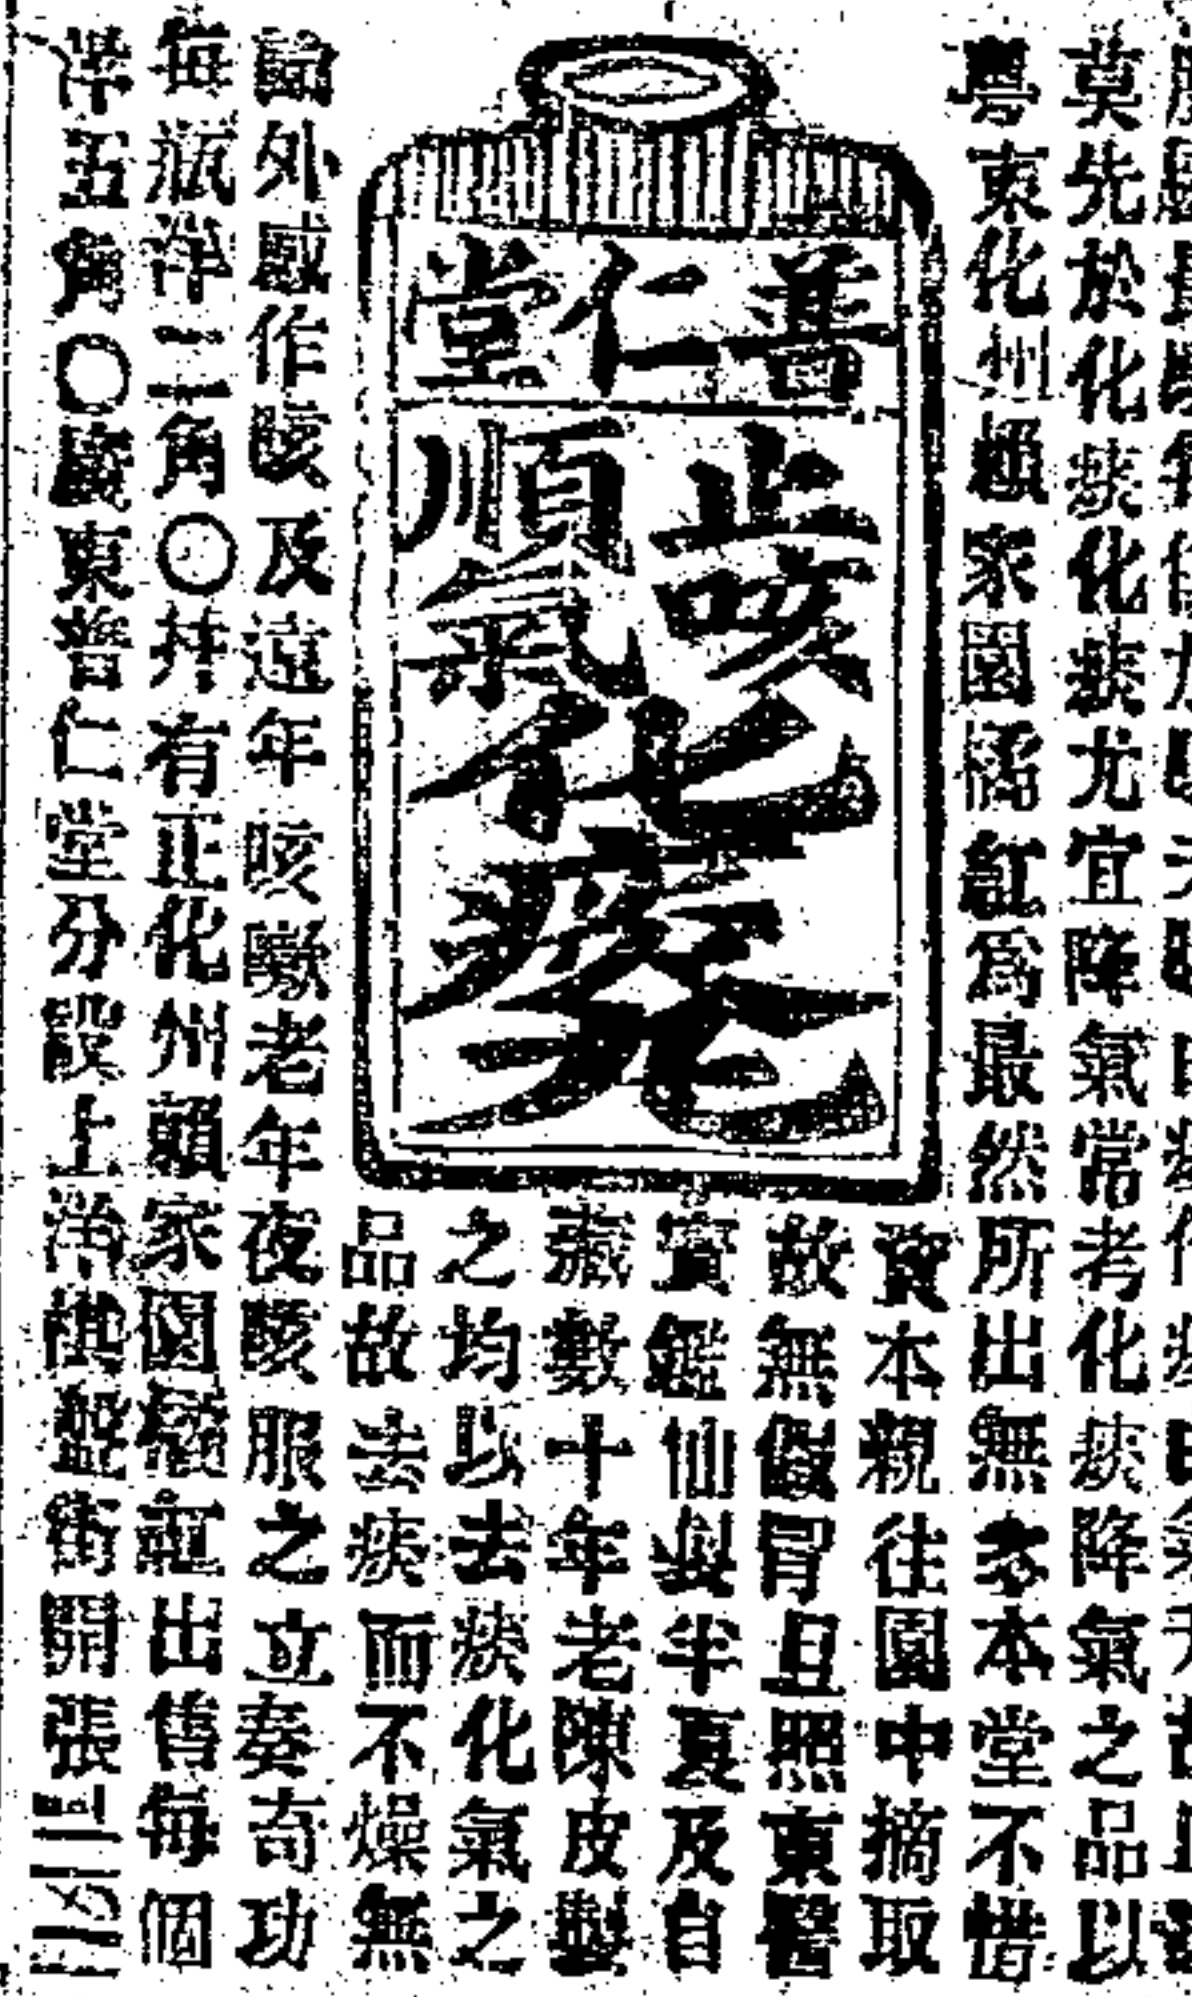 莫先於化痰化痰尤宜降氣常考化痰降氣之品以
粤東化州賴家園橘紅爲最然所出無多本堂不惜
資本親往園中摘取
故無假冒且照東醫
寳鑑仙製半夏及自
藏數十年老陳皮製
之均以去痰化氣之
品故去痰而不燥無
普仁堂
止咳
順氣
化痰丸
論外感作咳及遠年咳嗽老年夜咳服之立奏奇功
每瓶洋二角〇并有正化州賴家園橘紅出售每個
洋五角〇廣東普仁堂分設上洋棋盤街開張